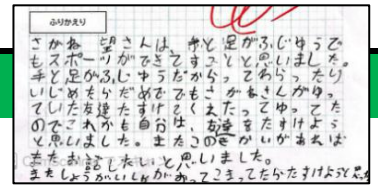 ふりかえり
さかね 望さんは、手と足がふじゆうで
もスポーツができてすごと思いました。
手と足がふじゆうだからってわらったり
いじめたらだめででもさかねさんがゆっ
ていた友達たすけてくえたってゆってた
のでこれかも自分は、友達をたすけよう
と思いました。またこのきかいがあえば
またお話したいと思いました。
またしょうがいしゃがあってこまってたらたすけようと思った